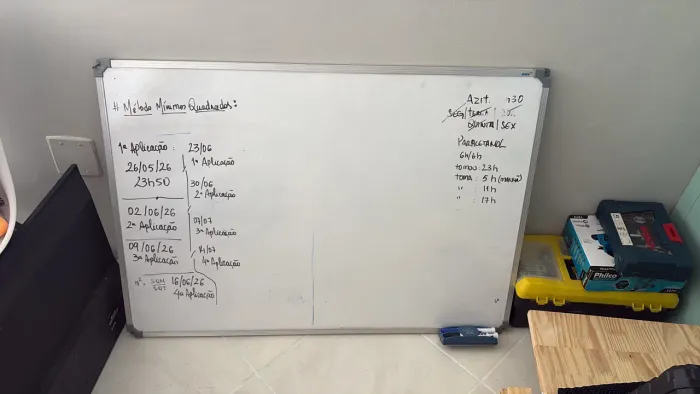 # Método Mínimos Quadrados:
1ª Aplicação:
26/05/26
23h50
02/06/26
2ª Aplicação
09/06/26
3ª Aplicação
16/06/26
4ª Aplicação
23/06
1ª Aplicação
30/06
2ª Aplicação
07/07
3ª Aplicação
14/07
4ª Aplicação
AZIT.
SEG/TERÇA
QUINTA/SEX
PARACETAMOL
6h/6h
tomou: 23h
toma: 5h (manhã)
" : 11h
" : 17h
Philco